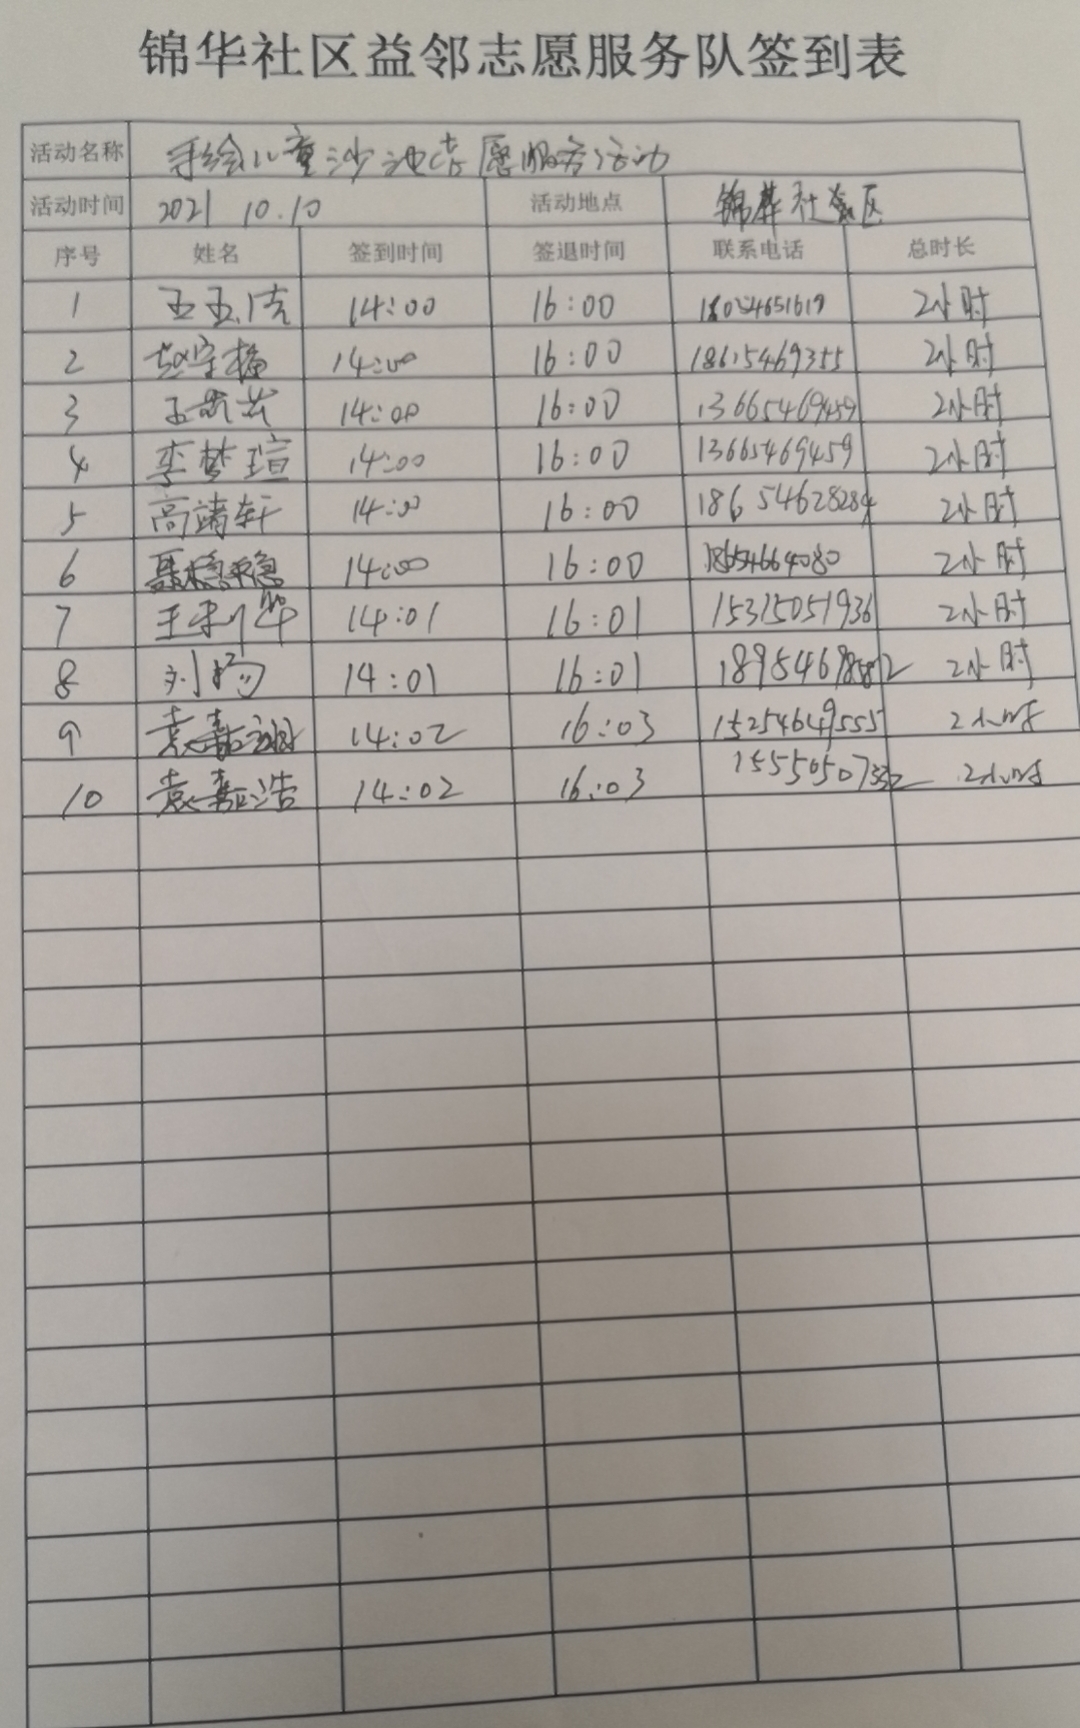 锦华社区益邻志愿服务队签到表
活动名称 手绘儿童沙池志愿服务活动
活动时间 2021 10.10 活动地点 锦华社区
序号 姓名 签到时间 签退时间 联系电话 总时长
1 14:00 16:00 2小时
2 14:00 16:00 18615469355 2小时
3 14:00 16:00 13665469459 2小时
4 李梦瑄 14:00 16:00 13665469459 2小时
5 高靖轩 14:00 16:00 18654628284 2小时
6 聂稳稳 14:00 16:00 18654664080 2小时
7 王利华 14:01 16:01 15315051936 2小时
8 刘杨 14:01 16:01 2小时
9 14:02 16:03 15254649555 2小时
10 袁嘉浩 14:02 16:03 2小时